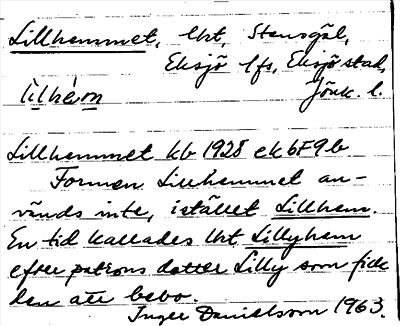 Lillhemmet, lht, Stensgöl,
Eksjö lfs, Eksjö stad,
lìlhèm Jönk. l.
Lillhemmet kb 1928 ek 6F9b
Formen Lillhemmet an-
vänds inte, istället Lillhem.
En tid kallades lht Lillyhem
efter patrons dotter Lilly som fick
den att bebo.
Inger Danielsson 1963.